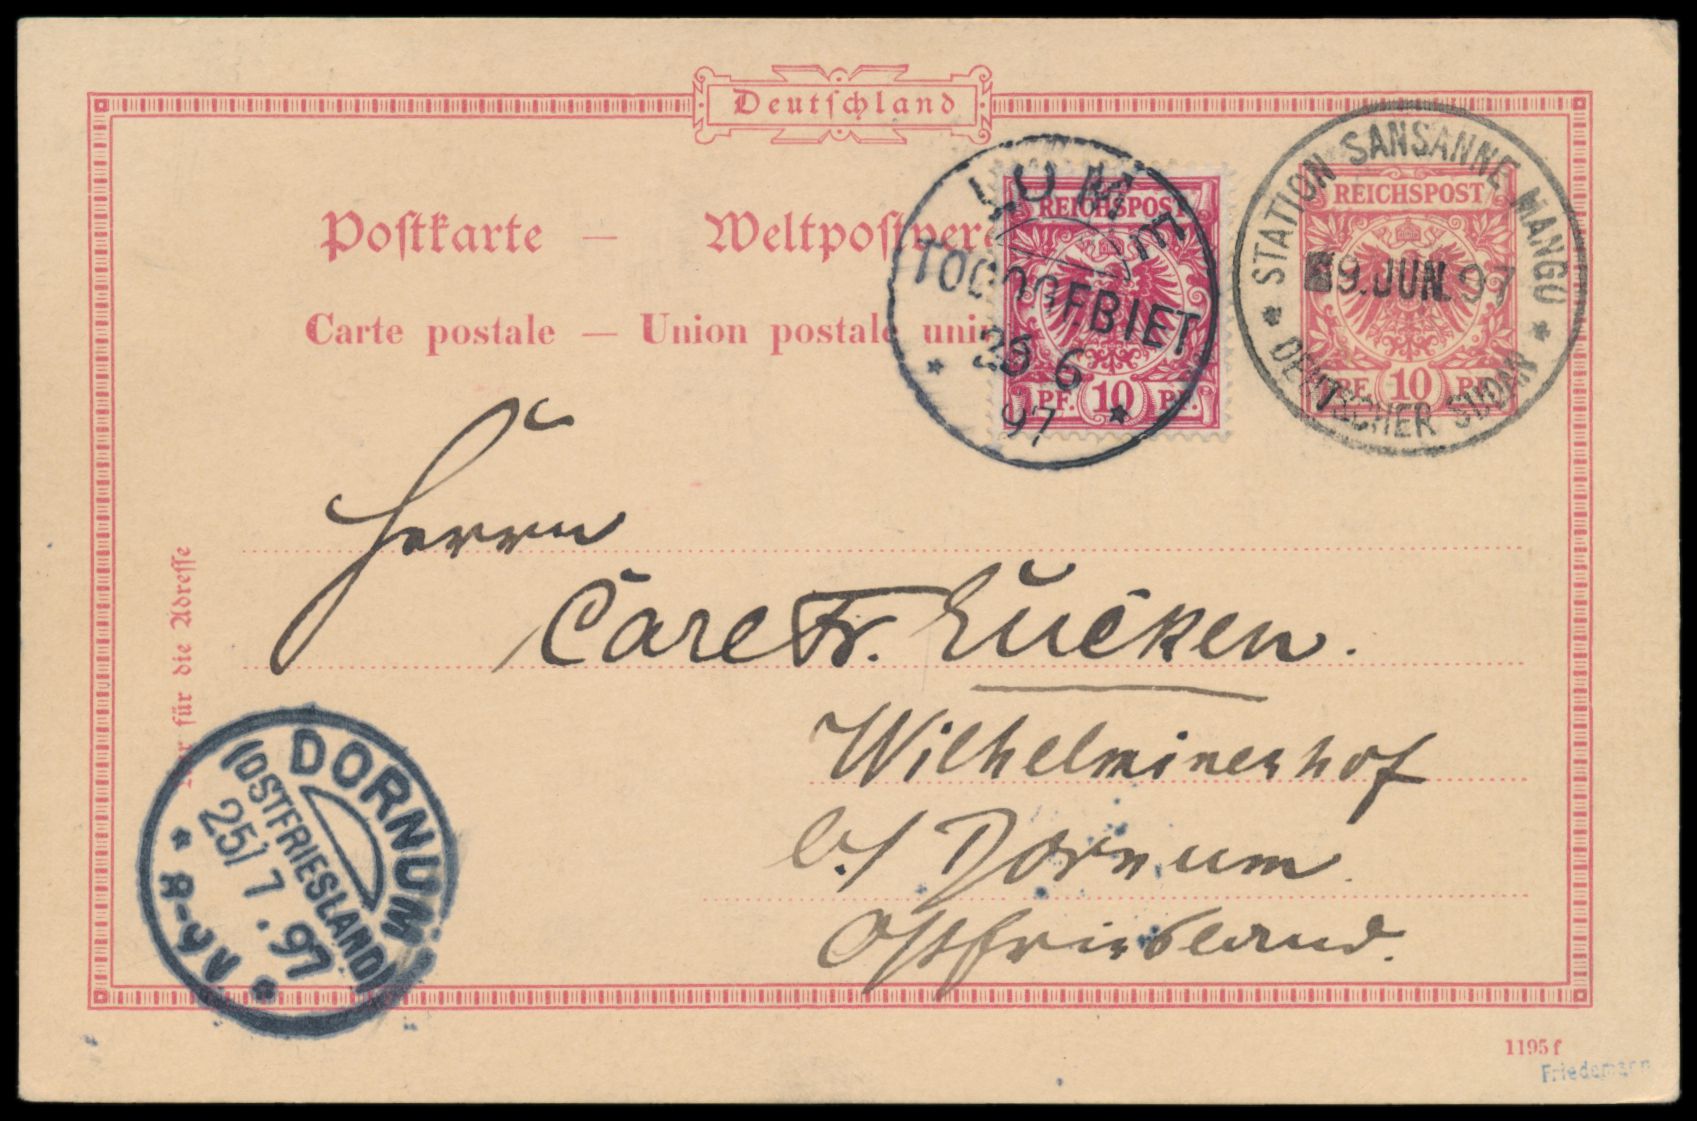 Deutschland
Postkarte — Weltpostvere
Carte postale — Union postale univ
REICHSPOST
PF. 10 PF.
LOME
TOGOGEBIET
26 6
97
REICHSPOST
PF. 10 PF.
STATION SANSANNE MANGU
9. JUN. 97
DEUTSCHER SUDAN
Herrn
Carl Fr. Eucken.
Wilhelminenhof
b/ Dornum
Ostfriesland.
Nur für die Adresse
DORNUM
(OSTFRIESLAND)
25/7.97
8-9V
1195 f
Friedemann